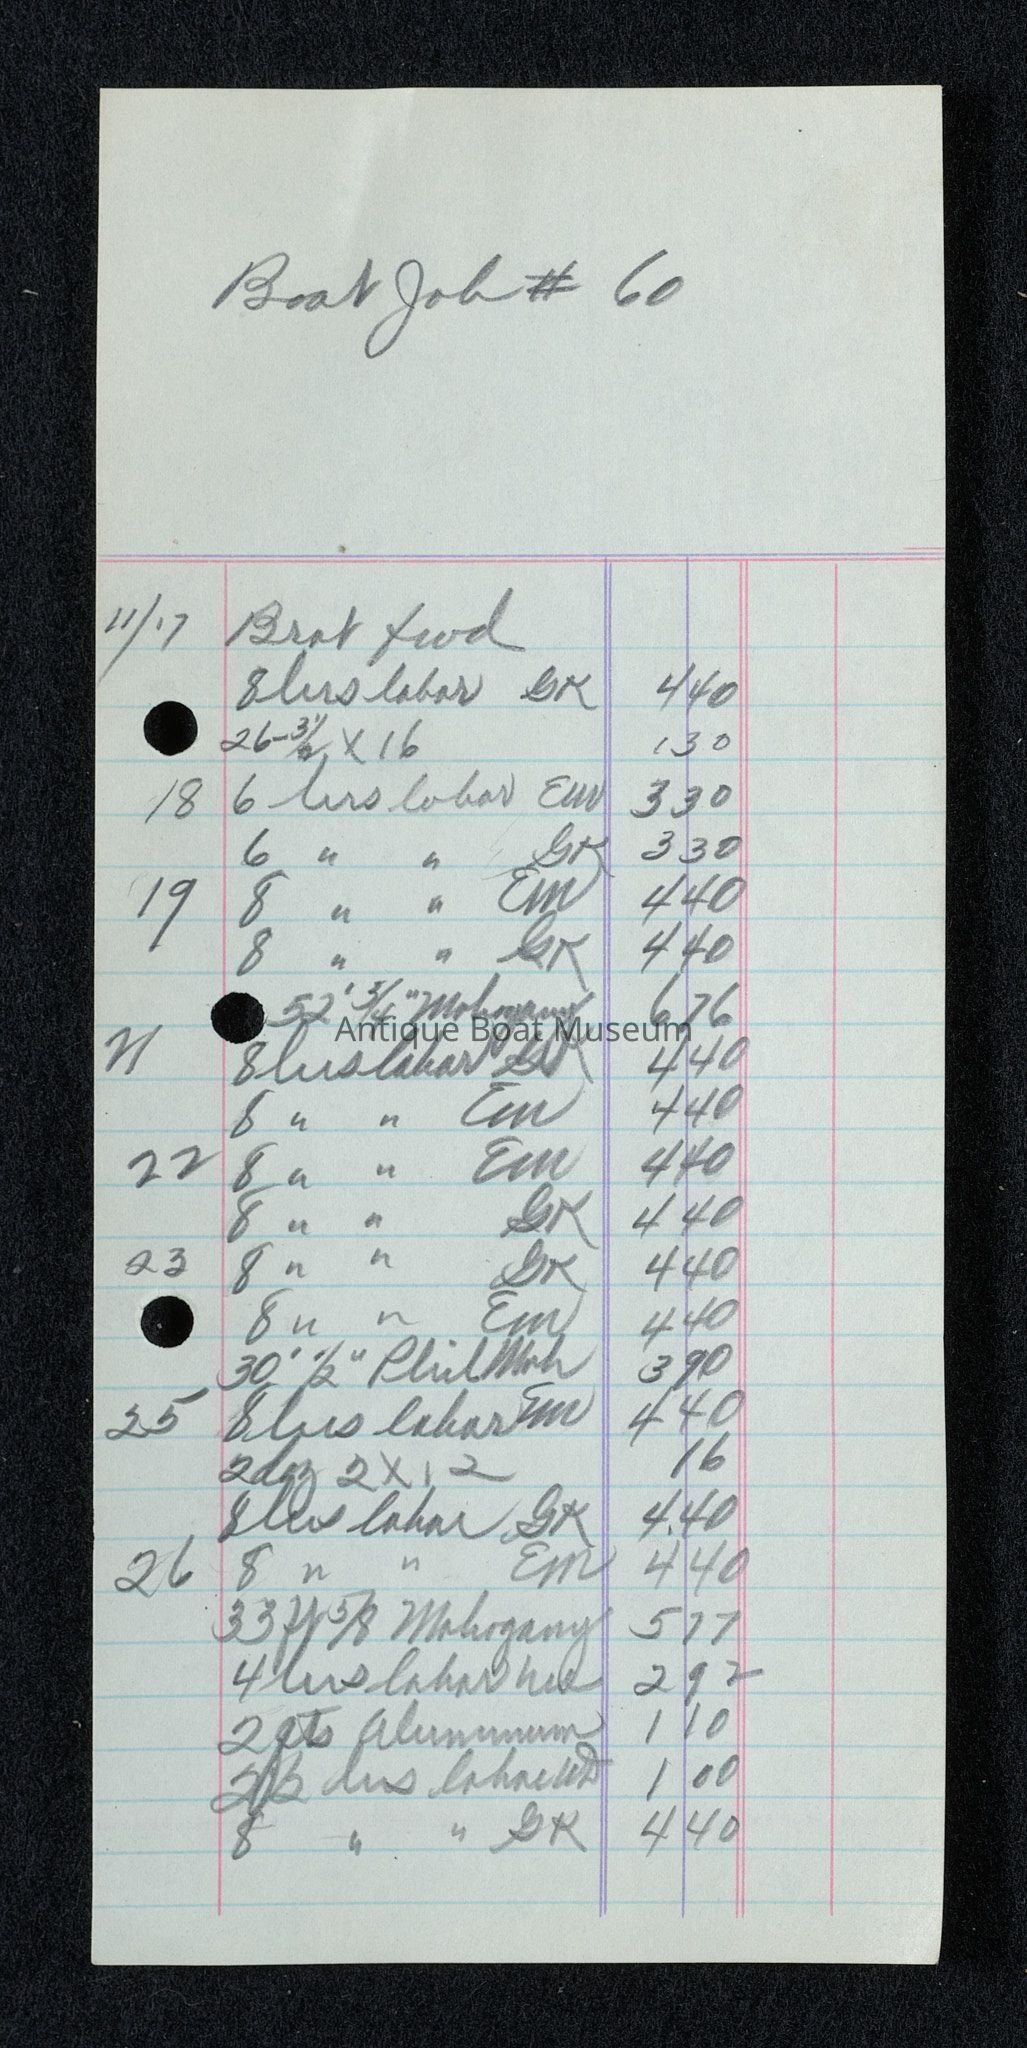 Boat Job # 60
11/17 Brot fwd
8 hrs labor GK 4 40
26-3 1/2 X 16 1 30
18 6 hrs labor EM 3 30
6 " " GK 3 30
19 8 " " EM 4 40
8 " " GK 4 40
52' 3/4" Mahogany 6 76
Antique Boat Museum
21 8 hrs labor GK 4 40
8 " " EM 4 40
22 8 " " EM 4 40
8 " " GK 4 40
23 8 " " GK 4 40
8 " " EM 4 40
30' 1/2" Phil Mah 3 90
25 8 hrs labor EM 4 40
2 doz 2 X 12 16
8 hrs labor GK 4 40
26 8 " " EM 4 40
33 ft 5/8 Mahogany 5 77
4 hrs labor 2 92
2 qts Aluminum 1 10
2 1/2 hrs labor 1 00
8 " " GK 4 40